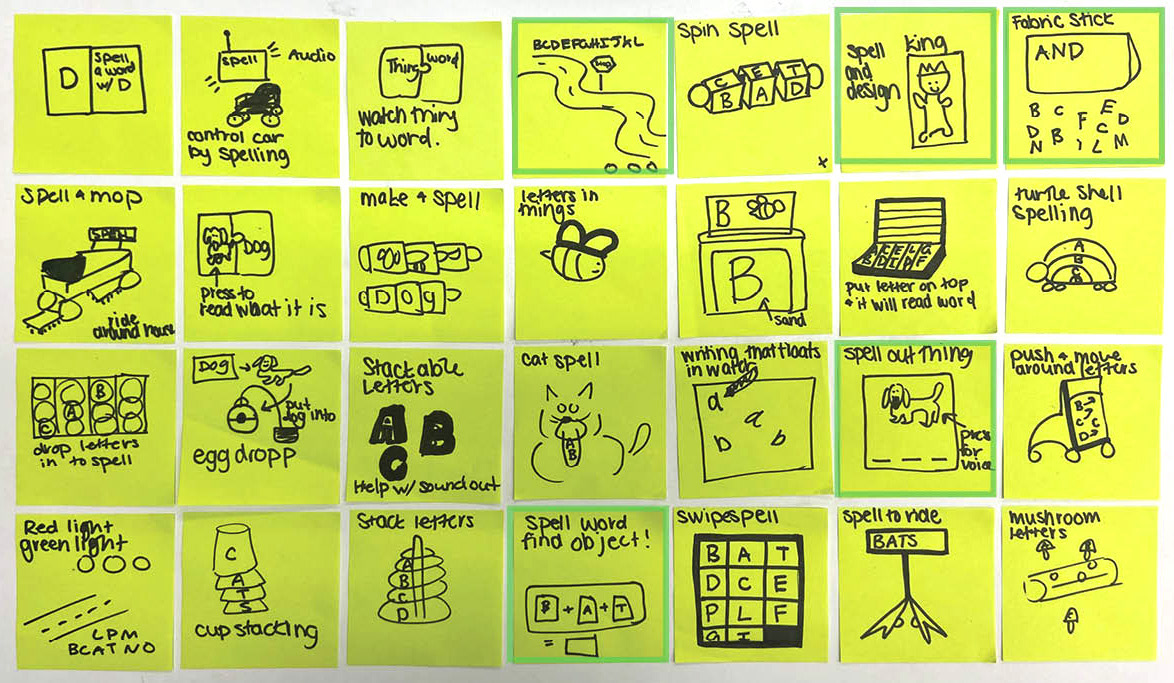 D
Spell
a word
w/ D
Spell
Audio
control car
by spelling
Thing
word
watch thing
to word.
BCDEFGHIJKL
Spin Spell
C E T
B A D
x
Spell
and
design
king
Fabric Stick
AND
B C E
F D
D B C
N I L M
Spell & mop
SPELL
ride
around house
DOG
press to
read what it is
make & spell
D O G
letters in
things
B
B
sand
A C E L G
B D I H F
put letter on top
& it will read word
turtle shell
spelling
A
B
C
B
A
C
drop letters
in to spell
DOG
put
dog into
egg dropp
Stackable
Letters
A B
C
Help w/ sound out
cat spell
A
B
writing that floats
in water
a
a
b b
spell out thing
press
for
voice
push & move
around letters
B
C C
D
Red light
green light
L P M
B C A T N O
C
A
T
S
cup stacking
Stack letters
A
B
C
D
Spell word
find object!
B + A + T
=
swipe spell
B A T
D C E
P L F
G I
spell to ride
BATS
mushroom
letters
E